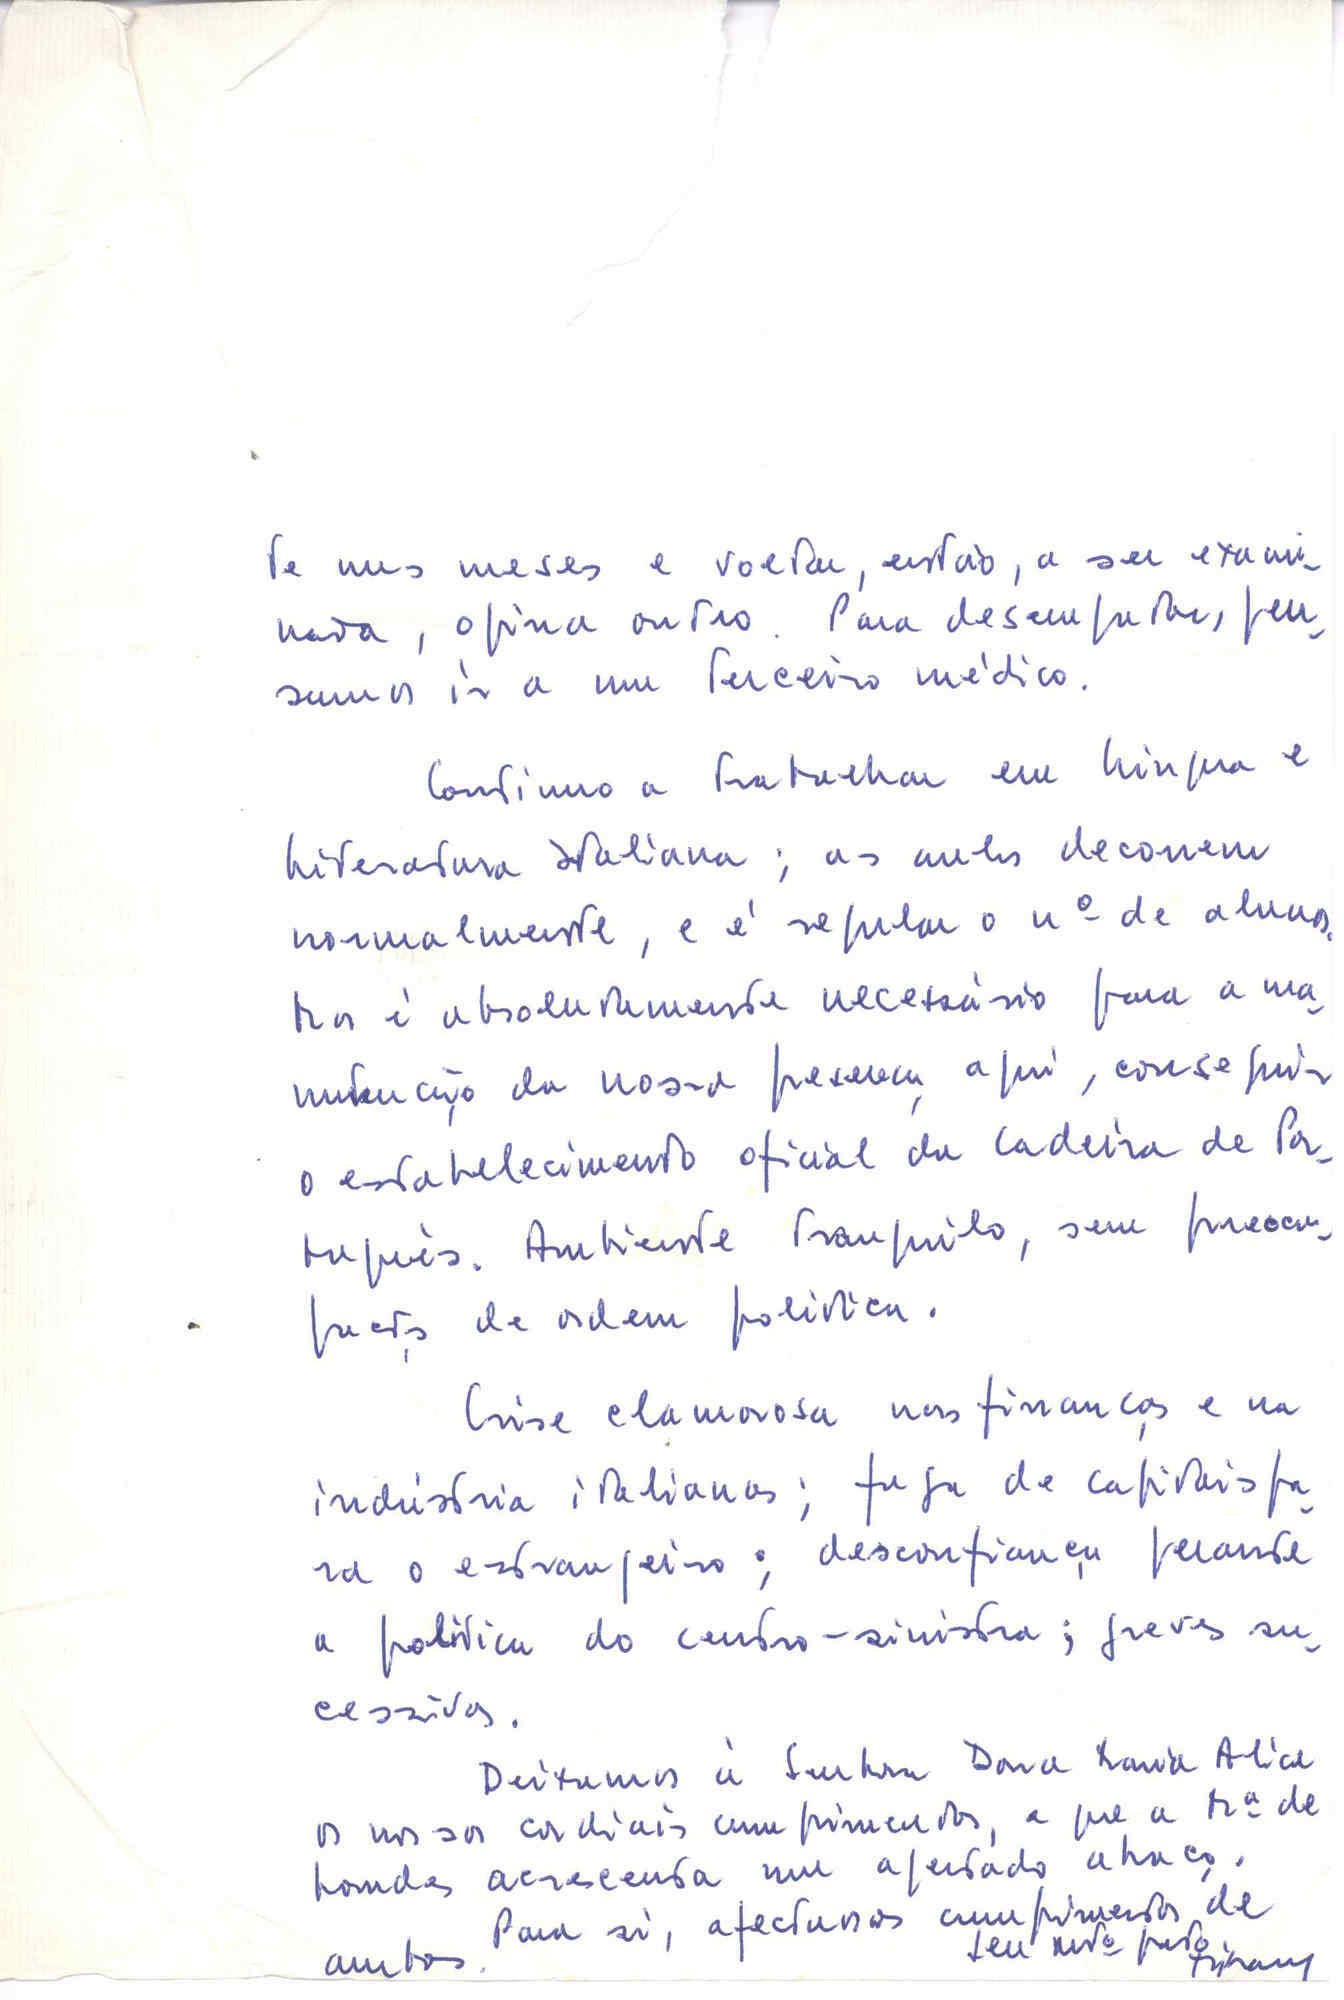 te uns meses e voltar, então, a ser exami-
nada, opina outro. Para desempatar, pen-
samos ir a um terceiro médico.
Continuo a trabalhar em Língua e
Literatura Italiana; as aulas decorrem
normalmente, e é regular o nº de alunos.
Mas é absolutamente necessário para a ma-
nutenção da nossa presença aqui, conseguir
o estabelecimento oficial da Cadeira de Por-
tuguês. Ambiente tranquilo, sem preocu-
pações de ordem política.
Crise clamorosa nas finanças e na
indústria italianas; fuga de capitais pa-
ra o estrangeiro; desconfiança perante
a política do centro-sinistra; greves su-
cessivas.
Deixamos à Senhora Dona Maria Alice
os nossos cordiais cumprimentos, a que a Mª de
Lourdes acrescenta um apertado abraço.
Para si, afectuosos cumprimentos de
ambos.
Seu mtº grato